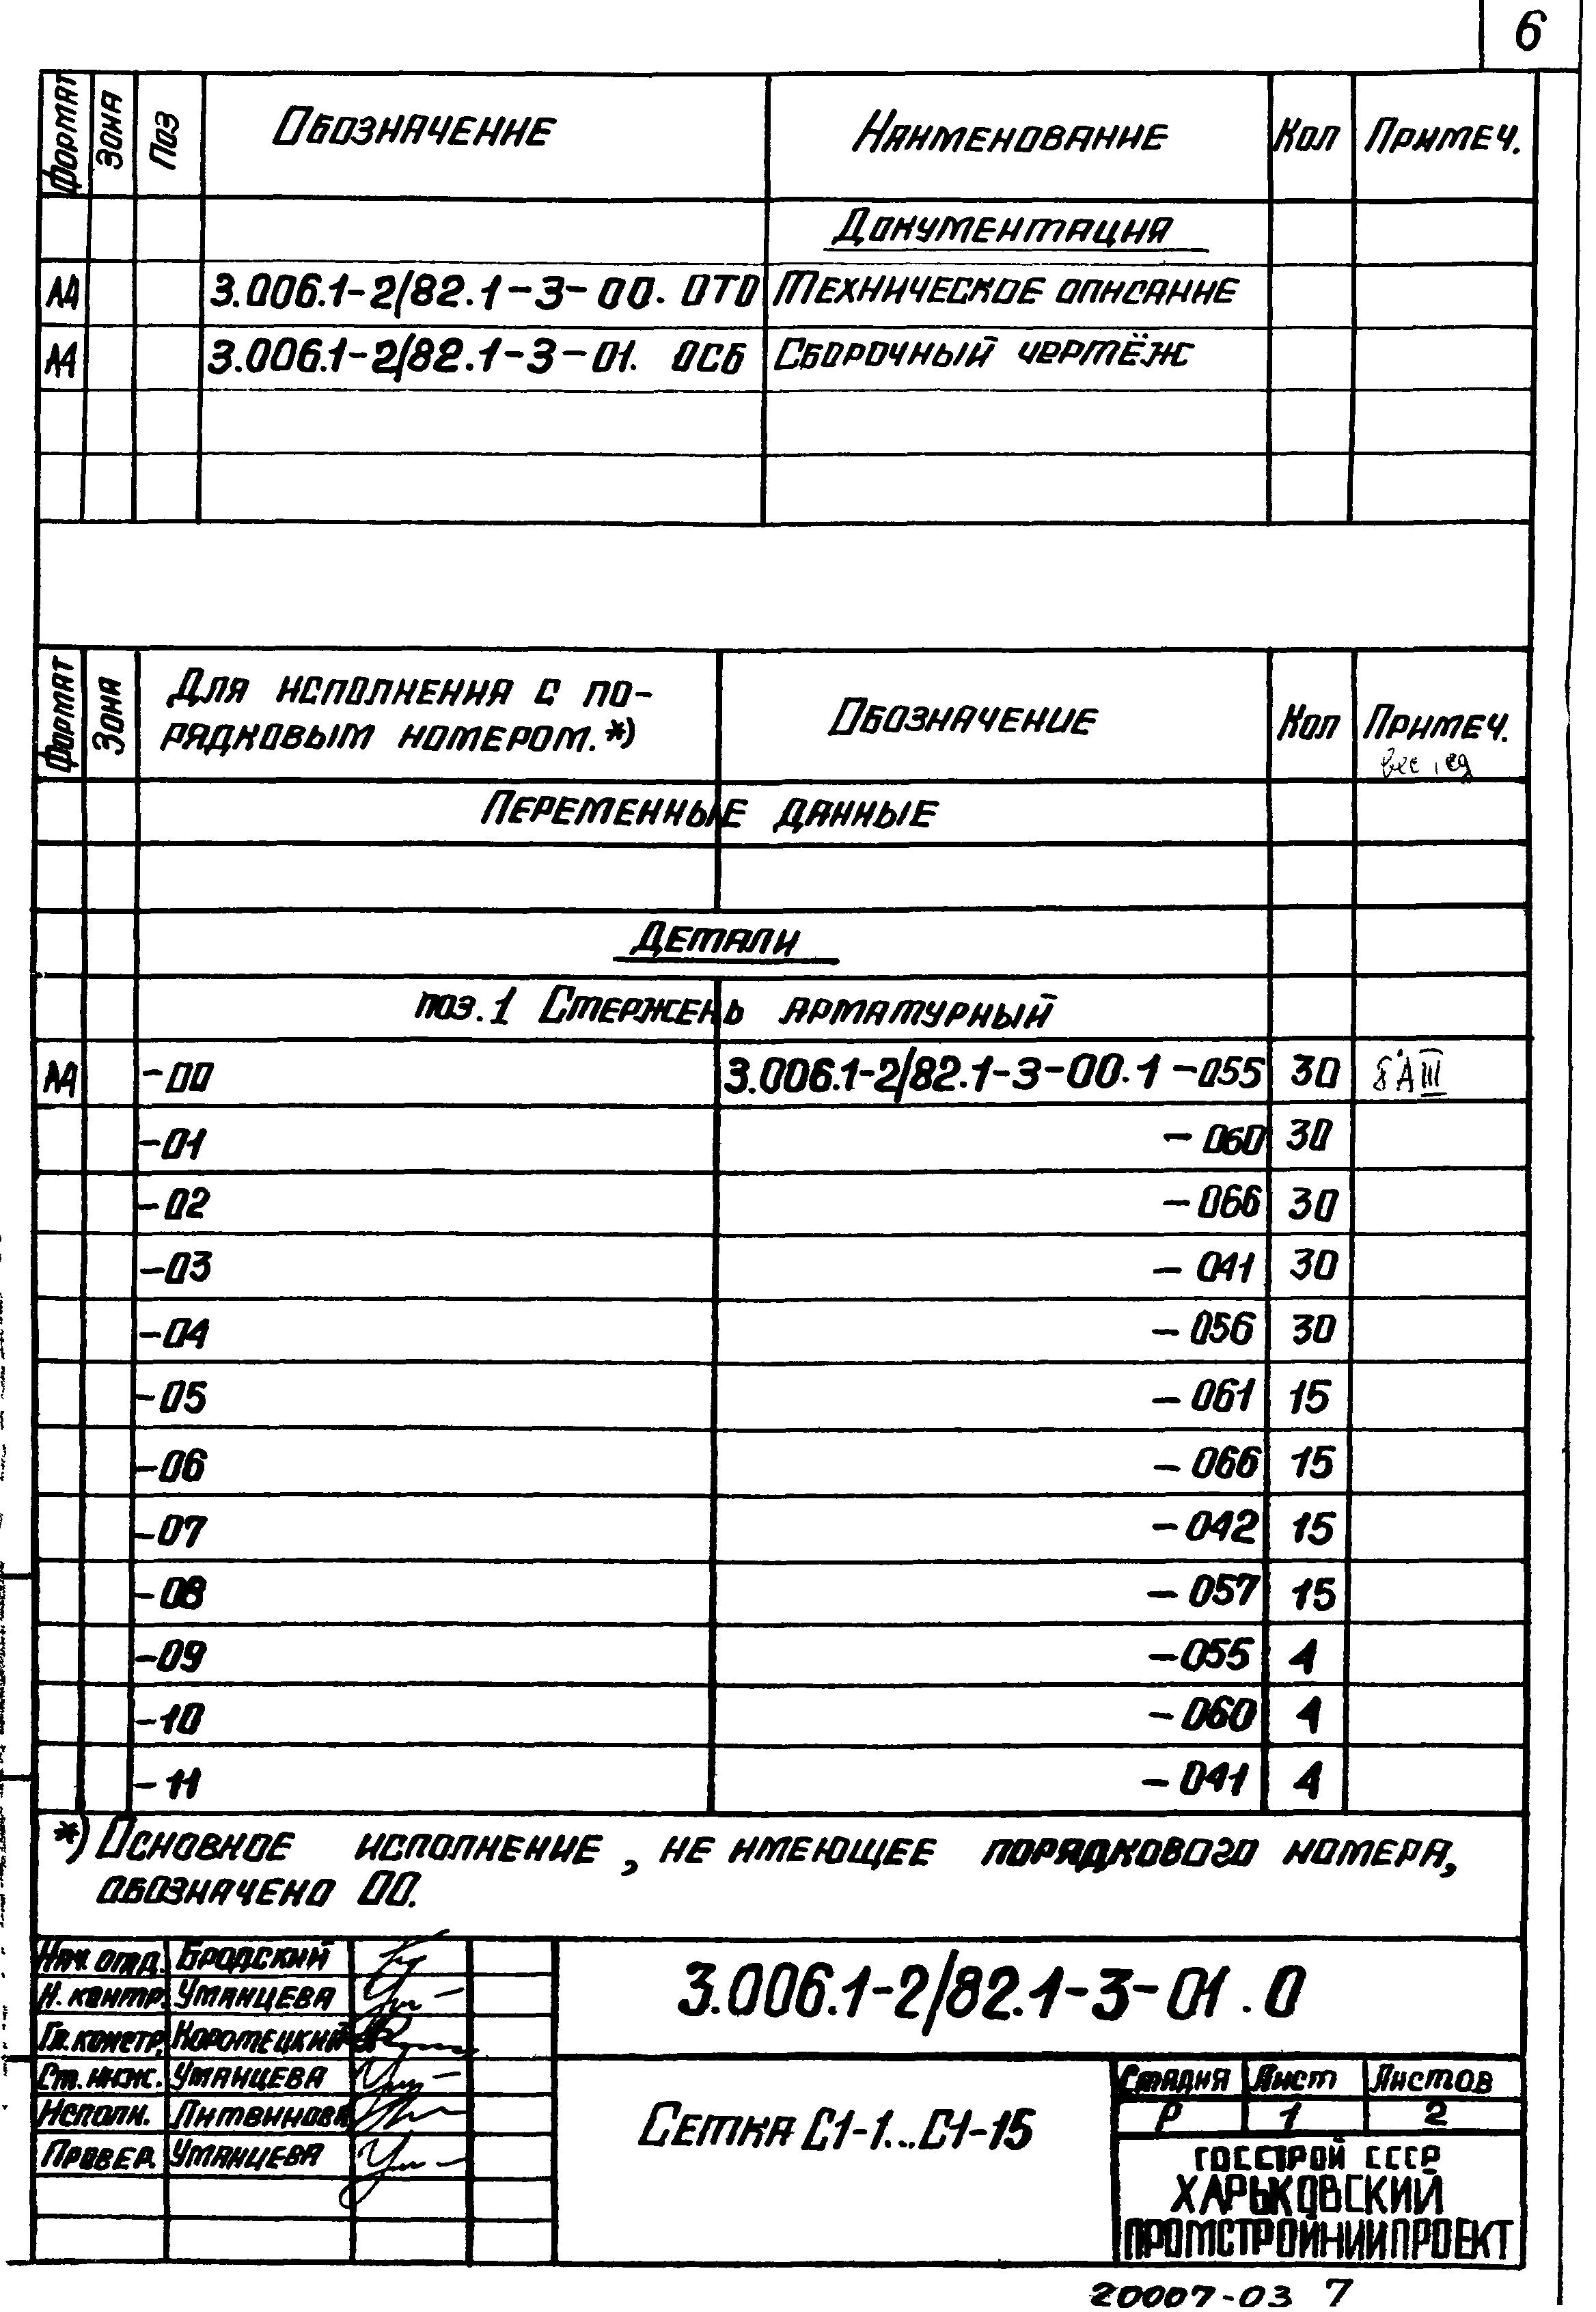 6
Формат Зона Поз Обозначение Наименование Кол Примеч.
Документация
А4 3.006.1-2/82.1-3-00. ОТО Техническое описание
А4 3.006.1-2/82.1-3-01. ОСБ Сборочный чертёж
Формат Зона Для исполнения с по-
рядковым номером.*) Обозначение Кол Примеч.
вес, ед
Переменные данные
Детали
поз.1 Стержень арматурный
А4 -00 3.006.1-2/82.1-3-00.1-055 30 8АIII
-01 -060 30
-02 -066 30
-03 -041 30
-04 -056 30
-05 -061 15
-06 -066 15
-07 -042 15
-08 -057 15
-09 -055 4
-10 -060 4
-11 -041 4
*) Основное исполнение, не имеющее порядкового номера,
обозначено 00.
Нач. отд. Бродский
Н. контр. Уманцева
Гл. констр. Коротецкий
Ст. инж. Уманцева
Исполн. Литвинова
Провер. Уманцева
3.006.1-2/82.1-3-01.0
Сетка С1-1...С1-15
Стадия Лист Листов
Р 1 2
ГОССТРОЙ СССР
ХАРЬКОВСКИЙ
ПРОМСТРОЙНИИПРОЕКТ
20007-03 7